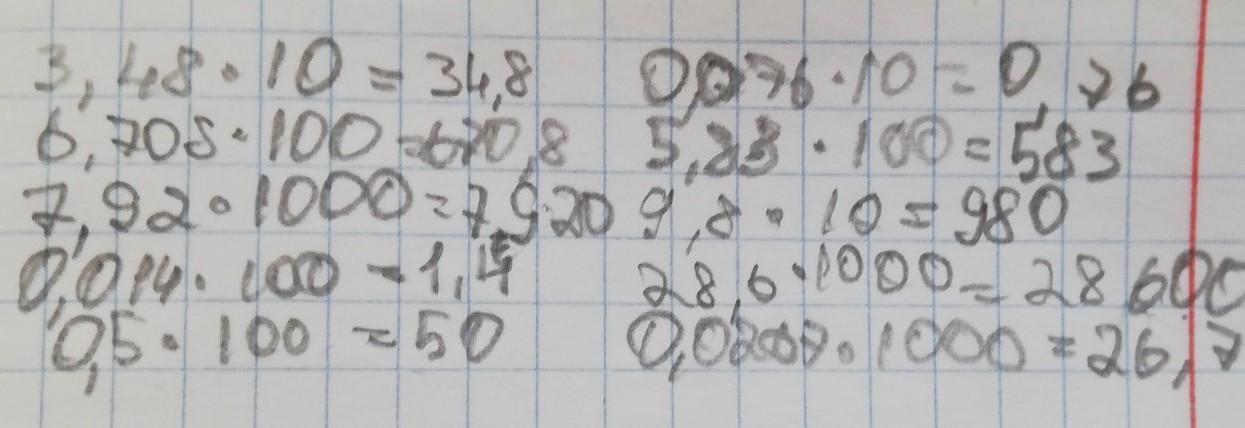 3,48·10=34,8 0,076·10=0,76
6,708·100=670,8 5,83·100=583
7,92·1000=7920 9,8·10=980
0,014·100=1,4 28,6·1000=28600
0,5·100=50 ·1000=26,7